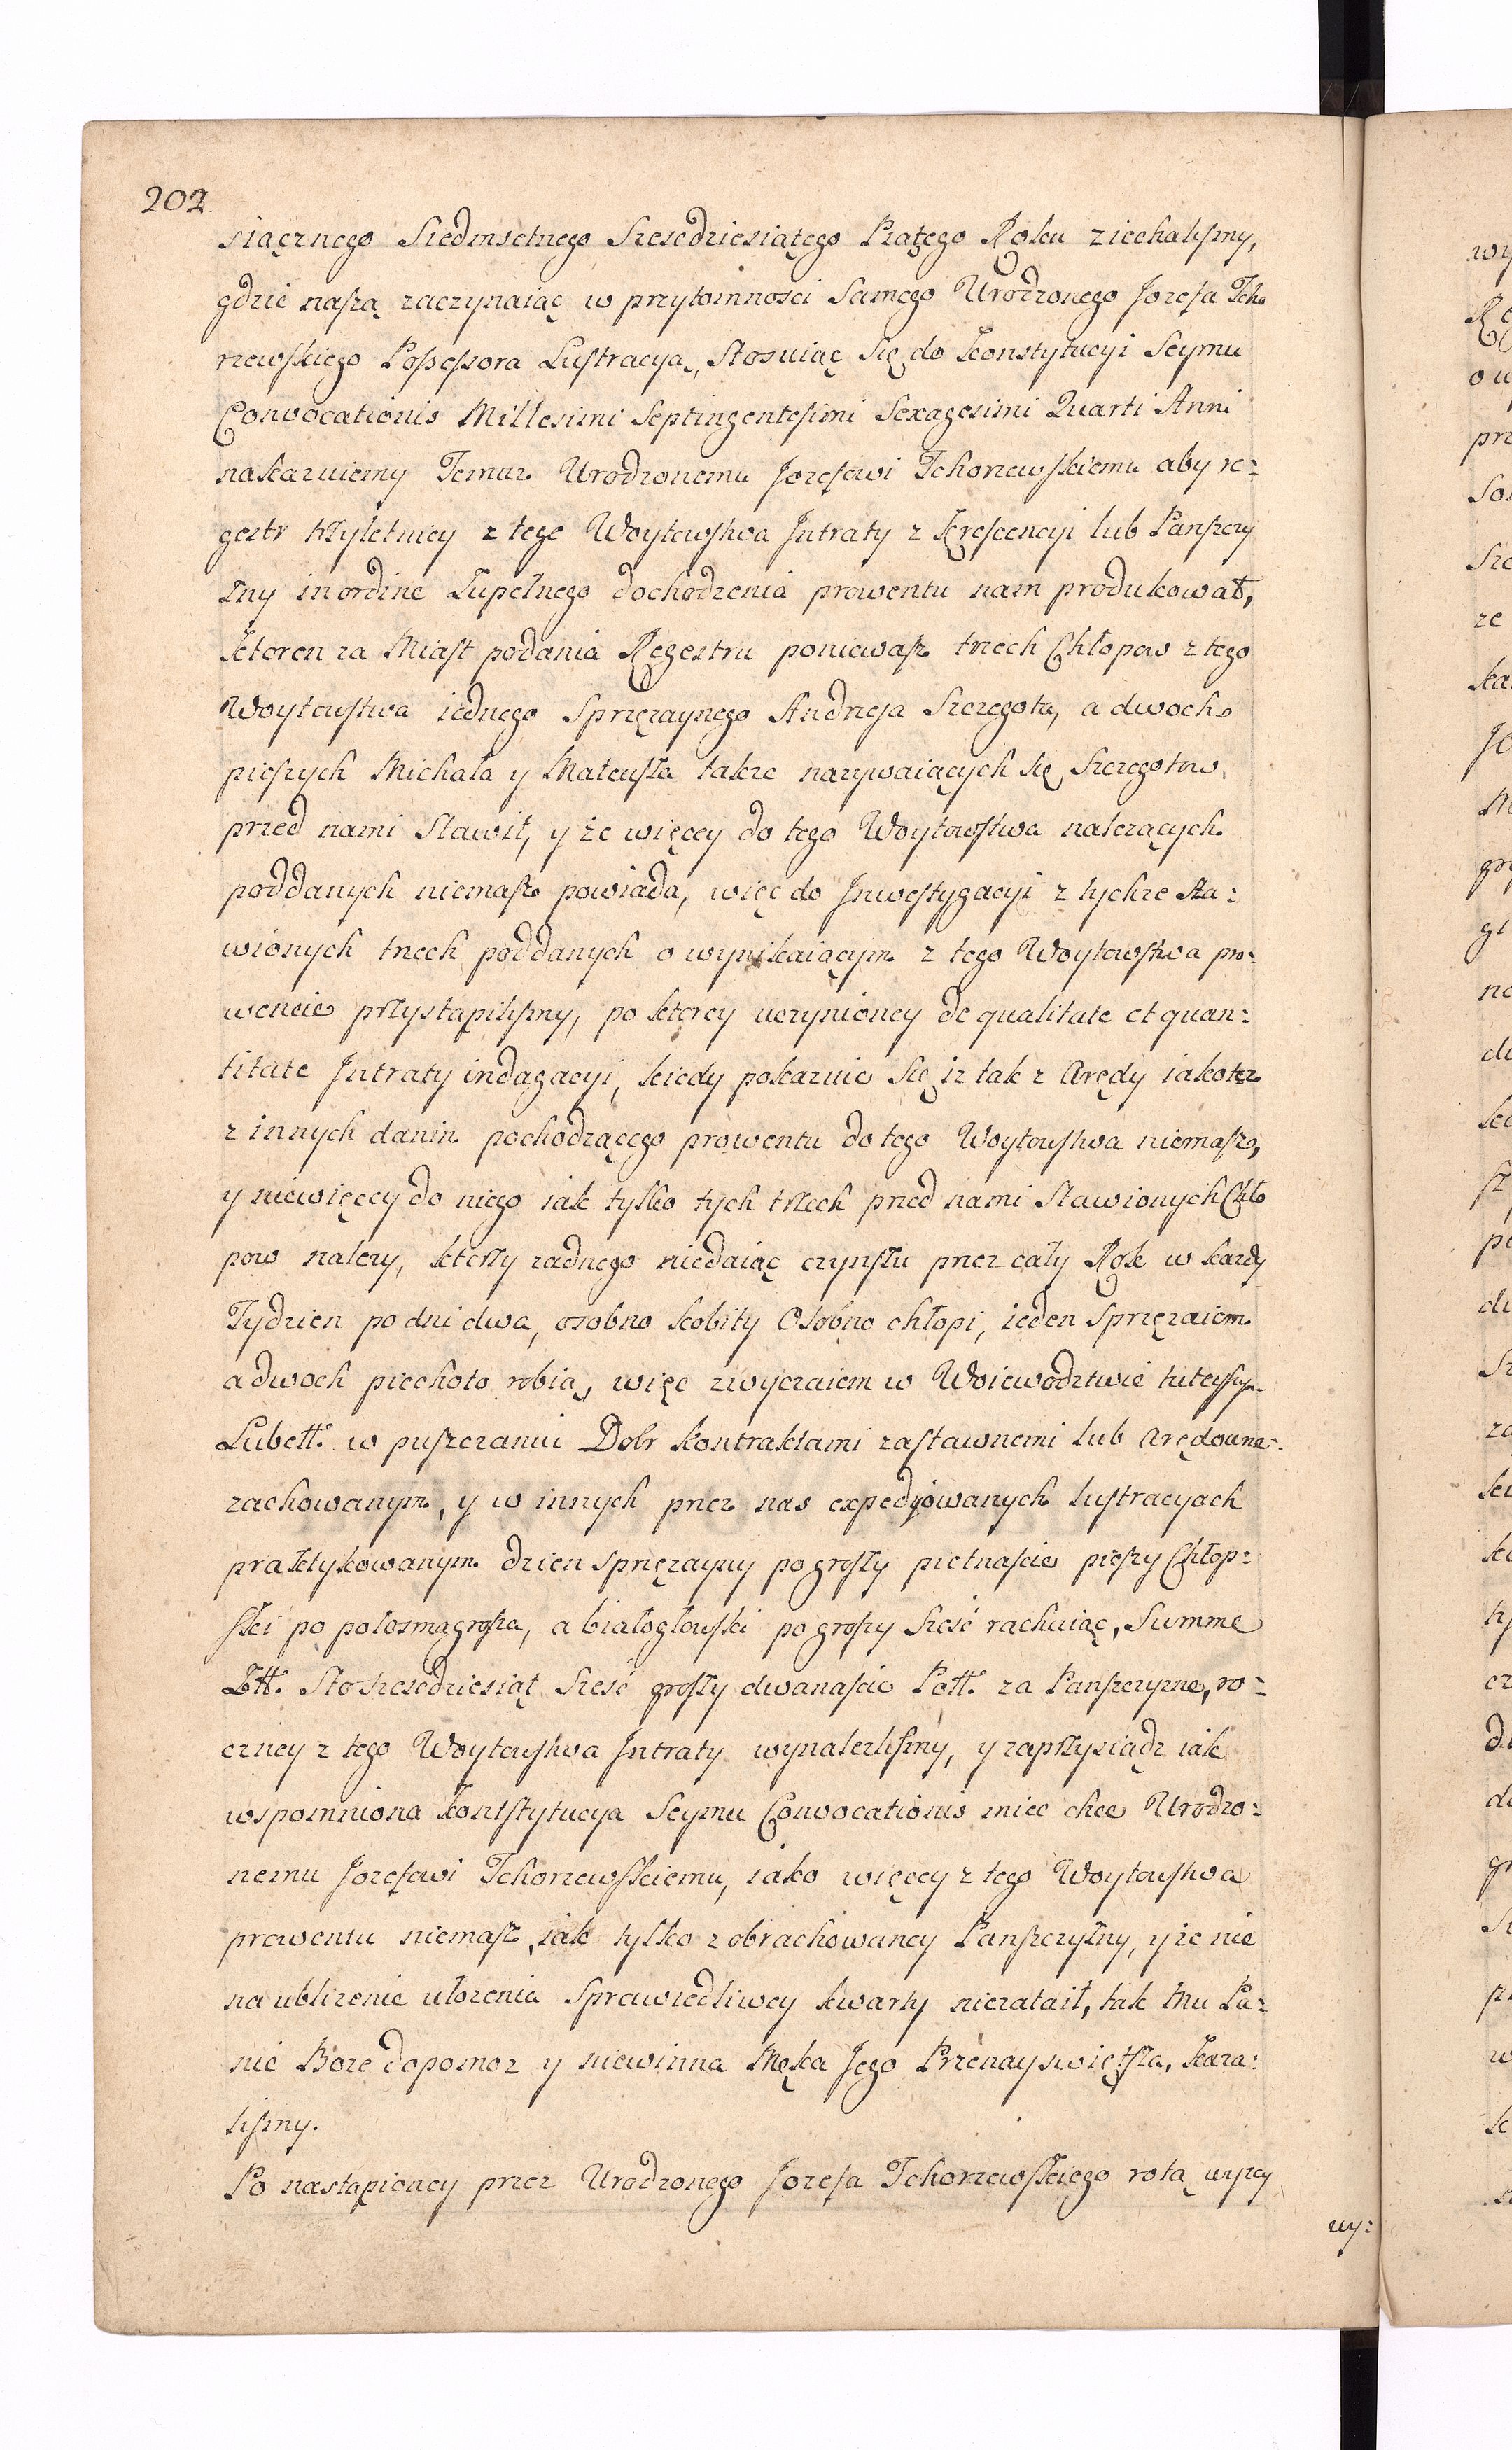 202
siącznego Siedmsetnego Szescdziesiątego Piątego Roku ziechalismy,
gdzie naszą zaczynaiąc w przytomnosci Samego Urodzonego Jozefa Tcho
rzewskiego Possessora Lustracyą, Stosuiąc Się do Konstytucyi Seymu
Convocationis Millesimi Septingentesimi Sexagesimi Quarti Anni
nakazuiemy Temuz Urodzonemu Jozefowi Tchorzewskiemu aby re=
gestr trzyletniey z tego Woytowstwa Jntraty z Krescencyi lub Panszczy
zny in ordine Zupełnego dochodzenia prowentu nam produkował,
Ktoren za Miast podania Regestru poniewasz trzech Chłopow z tego
Woytowstwa iednego Sprzęzaynego Andrzeja Szczegoła, a dwoch
pieszych Michała y Mateusza takze nazywaiących się Szczegołow
przed nami Stawił, y że więcey do tego Woytowstwa nalezących
poddanych niemasz powiada, więc do Jnwestygacyi z tychze sta=
wionych trzech poddanych o wynikaiącym z tego Woytowstwa pro=
wencie przystąpilismy, po ktorey uczynioney de qualitate et quan=
titate Jntraty indagacyi, kiedy pokazuie Się iz tak z Arędy iakotez
z innych danin pochodzącego prowentu do tego Woytowstwa niemasz,
y niewięcey do niego iak tylko tych trzech przed nami Stawionych Chło
pow nalezy, ktorzy zadnego niedaiąc czynszu przez cały Rok w kazdy
Tydzien po dni dwa, osobno kobity Osobno chłopi, ieden Sprzęzaiem
a dwoch piechoto robią, więc zwyczaiem w Woiewodztwie tuteyszym
Lubell. w puszczaniu Dobr kontraktami zastawnemi lub Arędowne=
zachowanym, y w innych przez nas expedyowanych lustracyach
praktykowanym dzien sprzęzayny po groszy pietnascie pieszy Chłop=
ski po połosmagrosza, a białogłowski po groszy Szesć rachuiąc, Summe
Złł. Sto szescdziesiąt Szesć groszy dwanascie Poll. za Panszczyzne, ro=
czney z tego Woytowstwa Jntraty wynalezlismy, y zaprzysiądz iak
wspomniona Konstytucya Seymu Convocationis miec chce Urodzo=
nemu Jozefowi Tchorzewskiemu, iako więcey z tego Woytowstwa
prowentu niemasz, iak tylko z obrachowaney Panszczyzny, y że nie
na ublizenie ułozenia Sprawiedliwey kwarty niezataił, tak mu Pa=
nie Boze dopomoz y niewinna Męka Jego Przenayswiętsza, Kaza=
lismy.
Po nastąpioney przez Urodzonego Jozefa Tchorzewskiego rotą wyzey
wy=